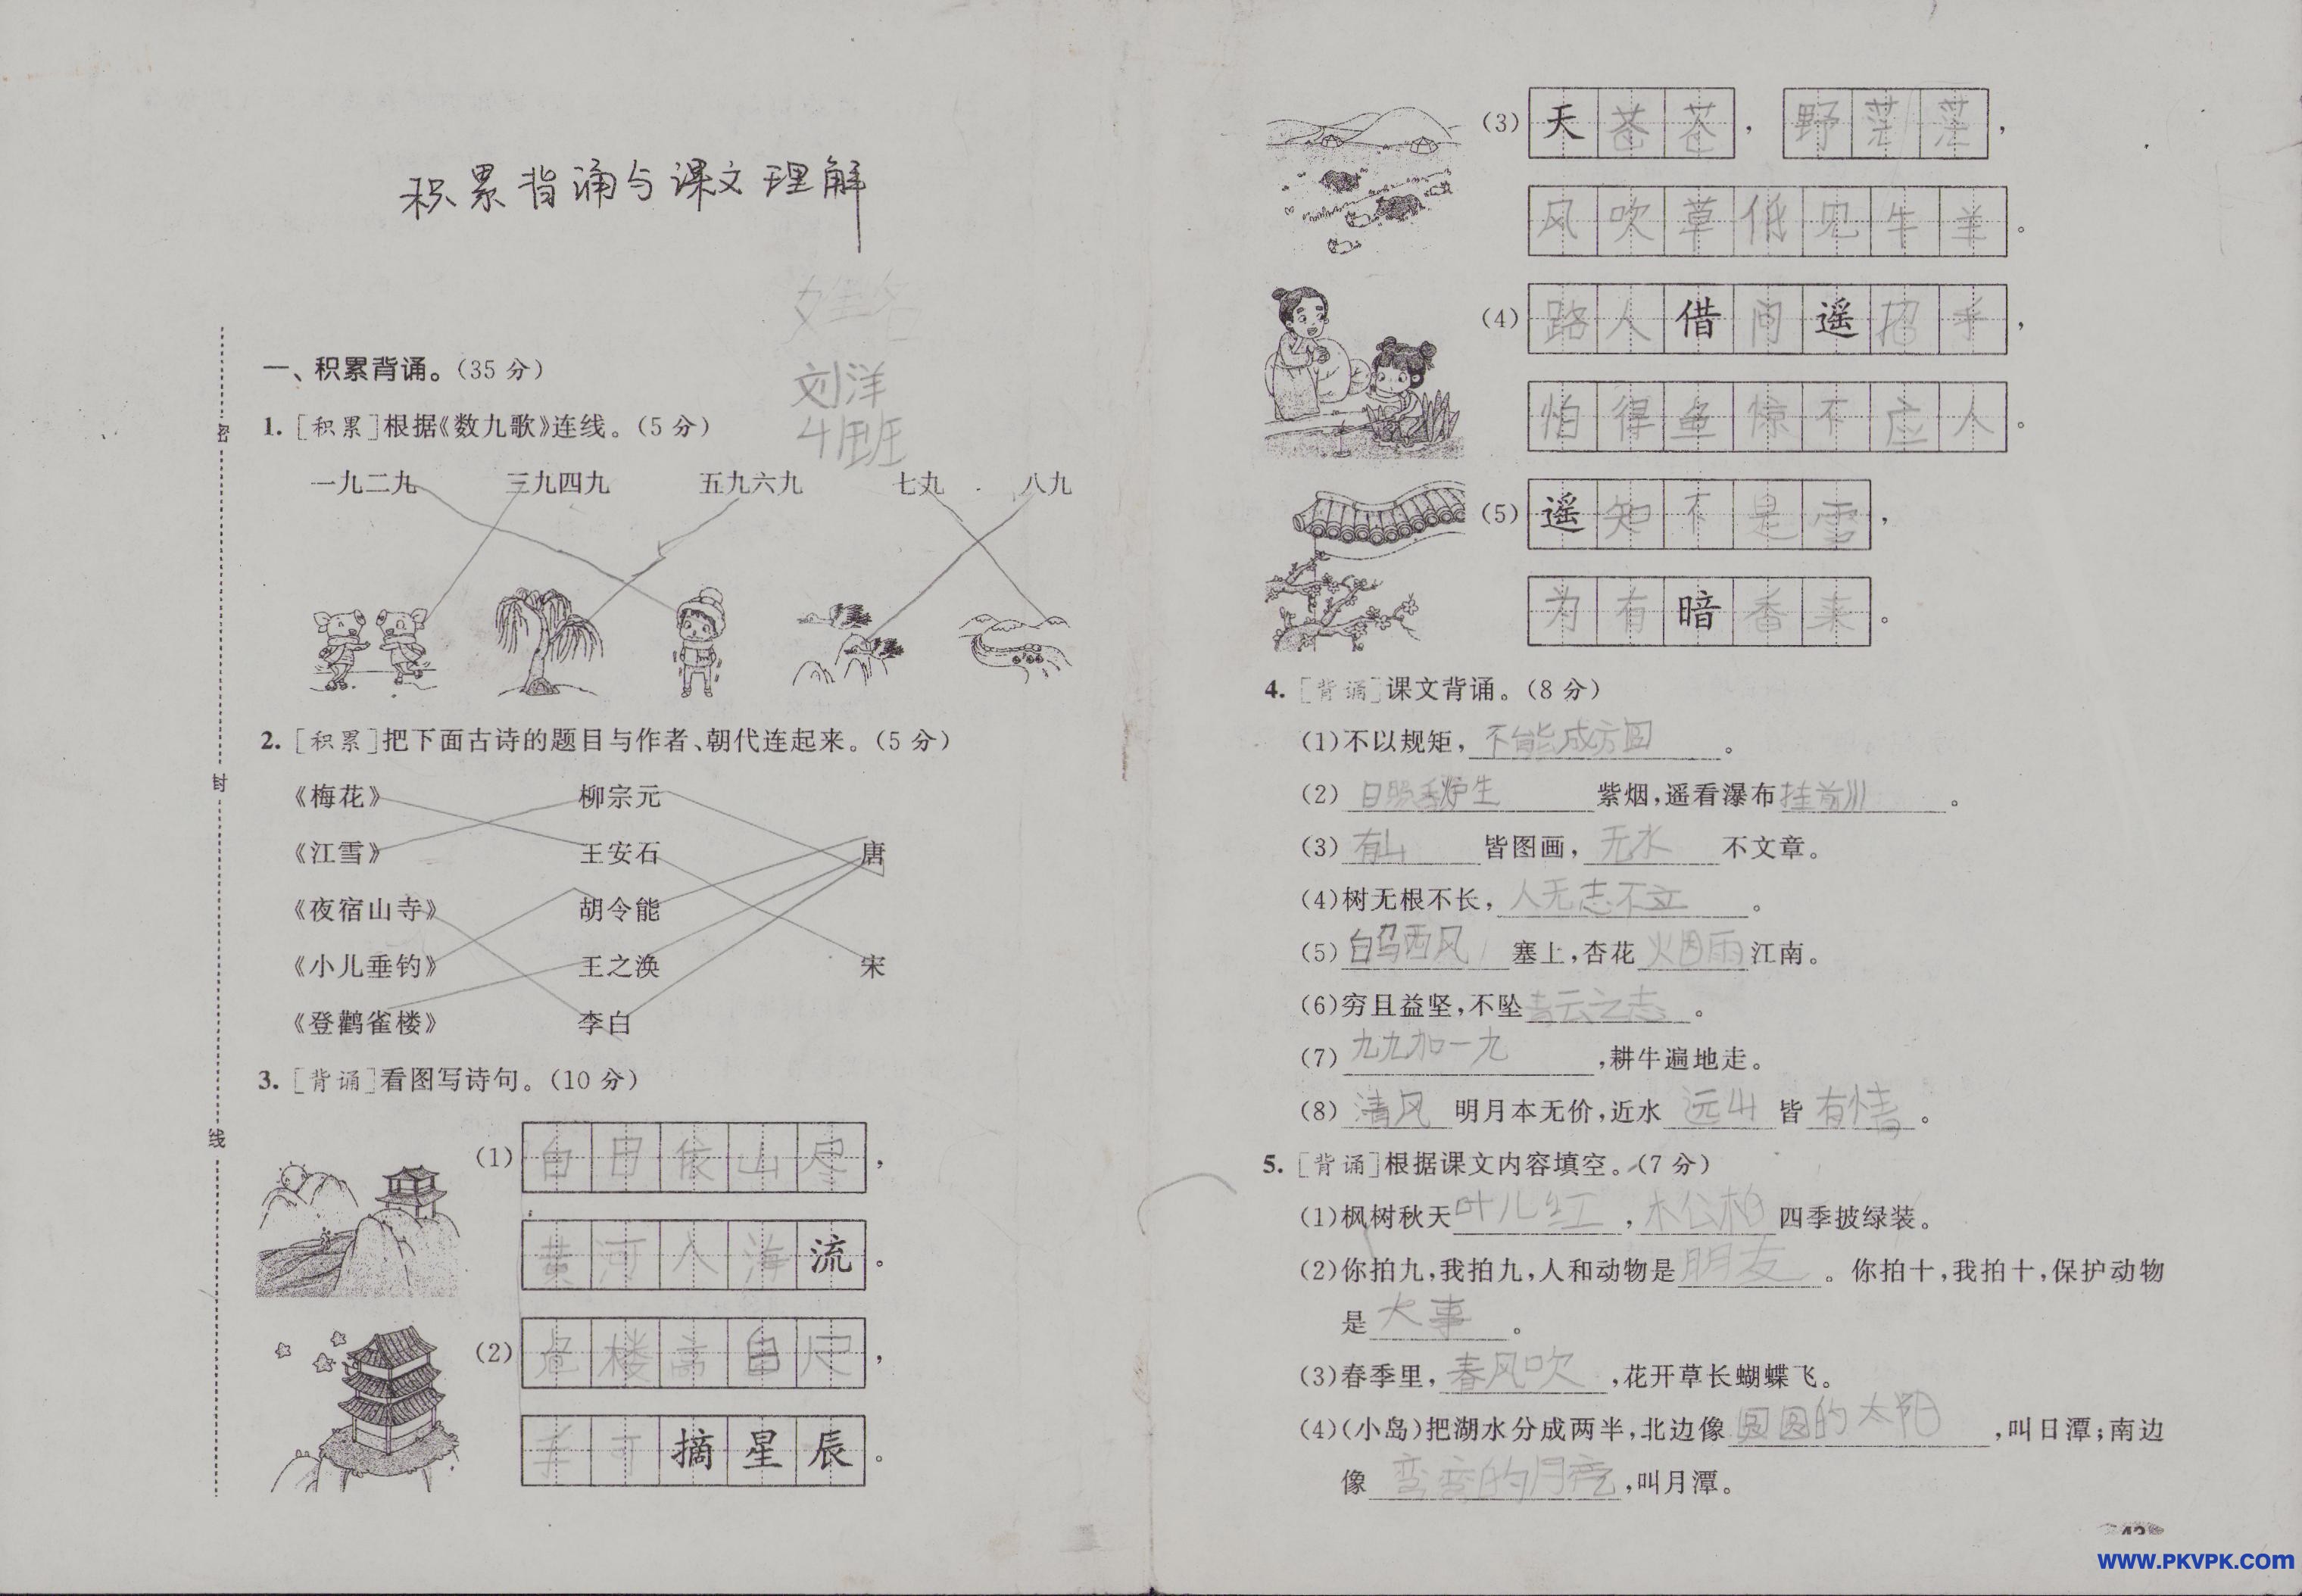 积累背诵与课文理解
姓名
刘洋
4班
密
封
线
一、积累背诵。(35 分)
1. [积累]根据《数九歌》连线。(5 分)
一九二九 三九四九 五九六九 七九 八九
2. [积累]把下面古诗的题目与作者、朝代连起来。(5 分)
《梅花》 柳宗元
《江雪》 王安石 唐
《夜宿山寺》 胡令能
《小儿垂钓》 王之涣 宋
《登鹳雀楼》 李白
3. [背诵]看图写诗句。(10 分)
(1) 白日依山尽,
黄河入海流。
(2) 危楼高百尺,
手可摘星辰。
(3) 天苍苍,野茫茫,
风吹草低见牛羊。
(4) 路人借问遥招手,
怕得鱼惊不应人。
(5) 遥知不是雪,
为有暗香来。
4. [背诵]课文背诵。(8 分)
(1)不以规矩,不能成方圆。
(2)日照香炉生紫烟,遥看瀑布挂前川。
(3)有山皆图画,无水不文章。
(4)树无根不长,人无志不立。
(5)白马西风塞上,杏花烟雨江南。
(6)穷且益坚,不坠青云之志。
(7)九九加一九,耕牛遍地走。
(8)清风明月本无价,近水远山皆有情。
5. [背诵]根据课文内容填空。(7 分)
(1)枫树秋天叶儿红,木公柏四季披绿装。
(2)你拍九,我拍九,人和动物是朋友。你拍十,我拍十,保护动物
是大事。
(3)春季里,春风吹,花开草长蝴蝶飞。
(4)(小岛)把湖水分成两半,北边像圆圆的太阳,叫日潭;南边
像弯弯的月亮,叫月潭。
43
www.PKVPK.com